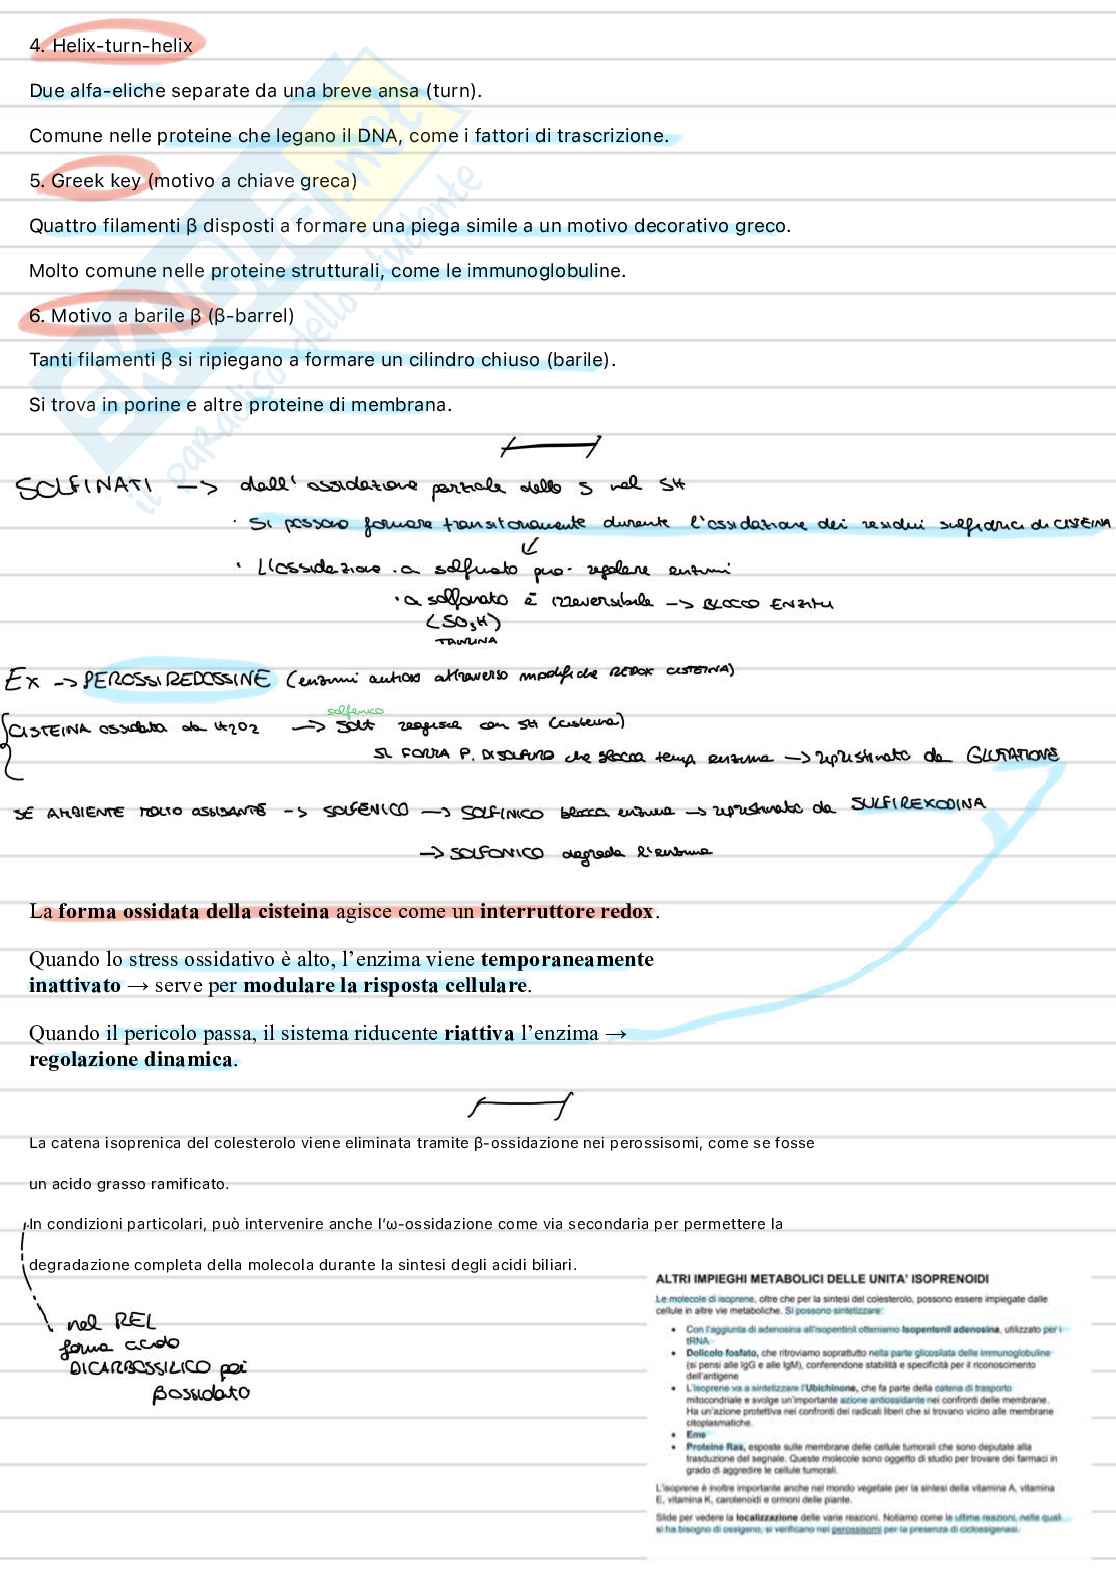 4. Helix-turn-helix
Due alfa-eliche separate da una breve ansa (turn).
Comune nelle proteine che legano il DNA, come i fattori di trascrizione.
5. Greek key (motivo a chiave greca)
Quattro filamenti β disposti a formare una piega simile a un motivo decorativo greco.
Molto comune nelle proteine strutturali, come le immunoglobuline.
6. Motivo a barile β (β-barrel)
Tanti filamenti β si ripiegano a formare un cilindro chiuso (barile).
Si trova in porine e altre proteine di membrana.
SKUOLA.net
il paradiso dello studente
SOLFINATI -> dall' ossidazione parziale dello S nel SH
· Si possono formare transitoriamente durante l'ossidazione dei residui sulfidrici di CISTEINA
· L'ossidazione · a solfinato può regolare enzimi
· a solfonato è irreversibile -> BLOCCO ENZIMI
(SO3H)
TAURINA
Ex -> PEROSSIREDOSSINE (enzimi attraverso modifiche REDOX CISTEINA)
solfenico
CISTEINA ossidata da H2O2 -> SOH reagisce con SH (cisteina)
SI FORMA P. DISOLFURO che blocca temp enzima -> ripristinato da GLUTATIONE
SE AMBIENTE MOLTO OSSIDANTE -> SOLFENICO -> SOLFINICO blocca enzima -> ripristinato da SULFIREXODINA
-> SOLFONICO degrada l'enzima
La forma ossidata della cisteina agisce come un interruttore redox.
Quando lo stress ossidativo è alto, l'enzima viene temporaneamente
inattivato → serve per modulare la risposta cellulare.
Quando il pericolo passa, il sistema riducente riattiva l'enzima →
regolazione dinamica.
La catena isoprenica del colesterolo viene eliminata tramite β-ossidazione nei perossisomi, come se fosse
un acido grasso ramificato.
In condizioni particolari, può intervenire anche l'ω-ossidazione come via secondaria per permettere la
degradazione completa della molecola durante la sintesi degli acidi biliari.
nel REL
forma acido
DICARBOSSILICO poi
βossidato
ALTRI IMPIEGHI METABOLICI DELLE UNITA' ISOPRENOIDI
Le molecole di isoprene, oltre che per la sintesi del colesterolo, possono essere impiegate dalle
cellule in altre vie metaboliche. Si possono sintetizzare:
• Con l'aggiunta di adenosina all'isopentinil otteniamo Isopentenil adenosina, utilizzato per i
tRNA
• Dolicolo fosfato, che ritroviamo soprattutto nella parte glicosilata delle immunoglobuline
(si pensi alle IgG e alle IgM), conferendone stabilità e specificità per il riconoscimento
dell'antigene
• L'isoprene va a sintetizzare l'Ubichinone, che fa parte della catena di trasporto
mitocondriale e svolge un'importante azione antiossidante nei confronti delle membrane.
Ha un'azione protettiva nei confronti dei radicali liberi che si trovano vicino alle membrane
citoplasmatiche.
• Eme
• Proteine Ras, esposte sulle membrane delle cellule tumorali che sono deputate alla
trasduzione del segnale. Queste molecole sono oggetto di studio per trovare dei farmaci in
grado di aggredire le cellule tumorali.
L'isoprene è inoltre importante anche nel mondo vegetale per la sintesi della vitamina A, vitamina
E, vitamina K, carotenoidi e ormoni delle piante.
Slide per vedere la localizzazione delle varie reazioni. Notiamo come le ultime reazioni, nelle quali
si ha bisogno di ossigeno, si verificano nei perossisomi per la presenza di ciclossigenasi.